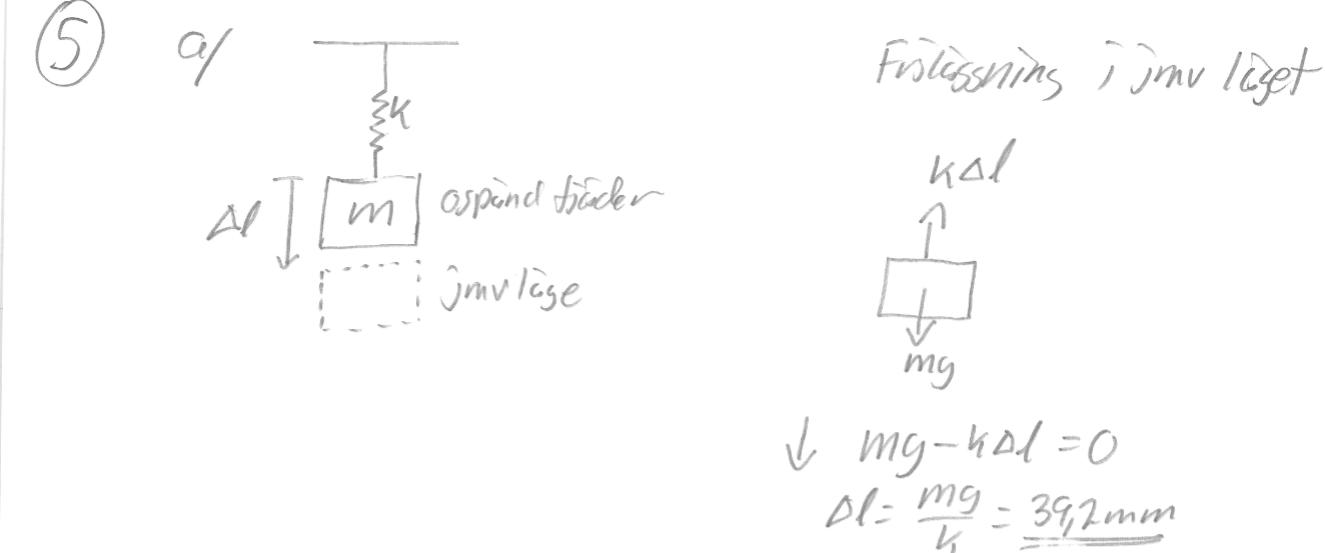 5 a/
k
Δl
m
ospänd fjäder
jmv läge
Friläggning i jmv läget
kΔl
mg
↓ mg - kΔl = 0
Δl = mg/k = 39,2 mm